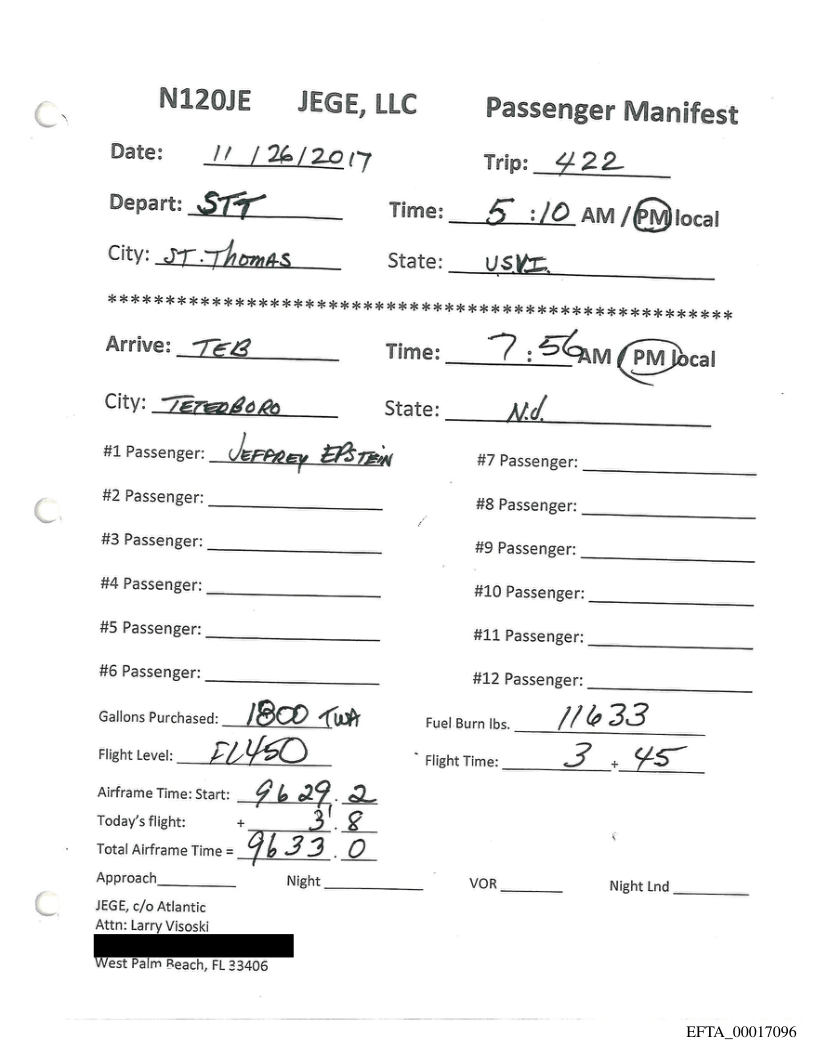 N120JE JEGE, LLC Passenger Manifest
Date: 11 / 26 / 2017 Trip: 422
Depart: STT Time: 5 : 10 AM / PM local
City: ST. THOMAS State: USVI.
******************************************************
Arrive: TEB Time: 7 : 56 AM / PM local
City: TETERBORO State: N.J.
#1 Passenger: JEFFREY EPSTEIN #7 Passenger:
#2 Passenger: #8 Passenger:
#3 Passenger: #9 Passenger:
#4 Passenger: #10 Passenger:
#5 Passenger: #11 Passenger:
#6 Passenger: #12 Passenger:
Gallons Purchased: 1800 TWA Fuel Burn lbs. 11633
Flight Level: FL450 Flight Time: 3 + 45
Airframe Time: Start: 9629.2
Today's flight: + 3.8
Total Airframe Time = 9633.0
Approach Night VOR Night Lnd
JEGE, c/o Atlantic
Attn: Larry Visoski
West Palm Beach, FL 33406
EFTA_00017096